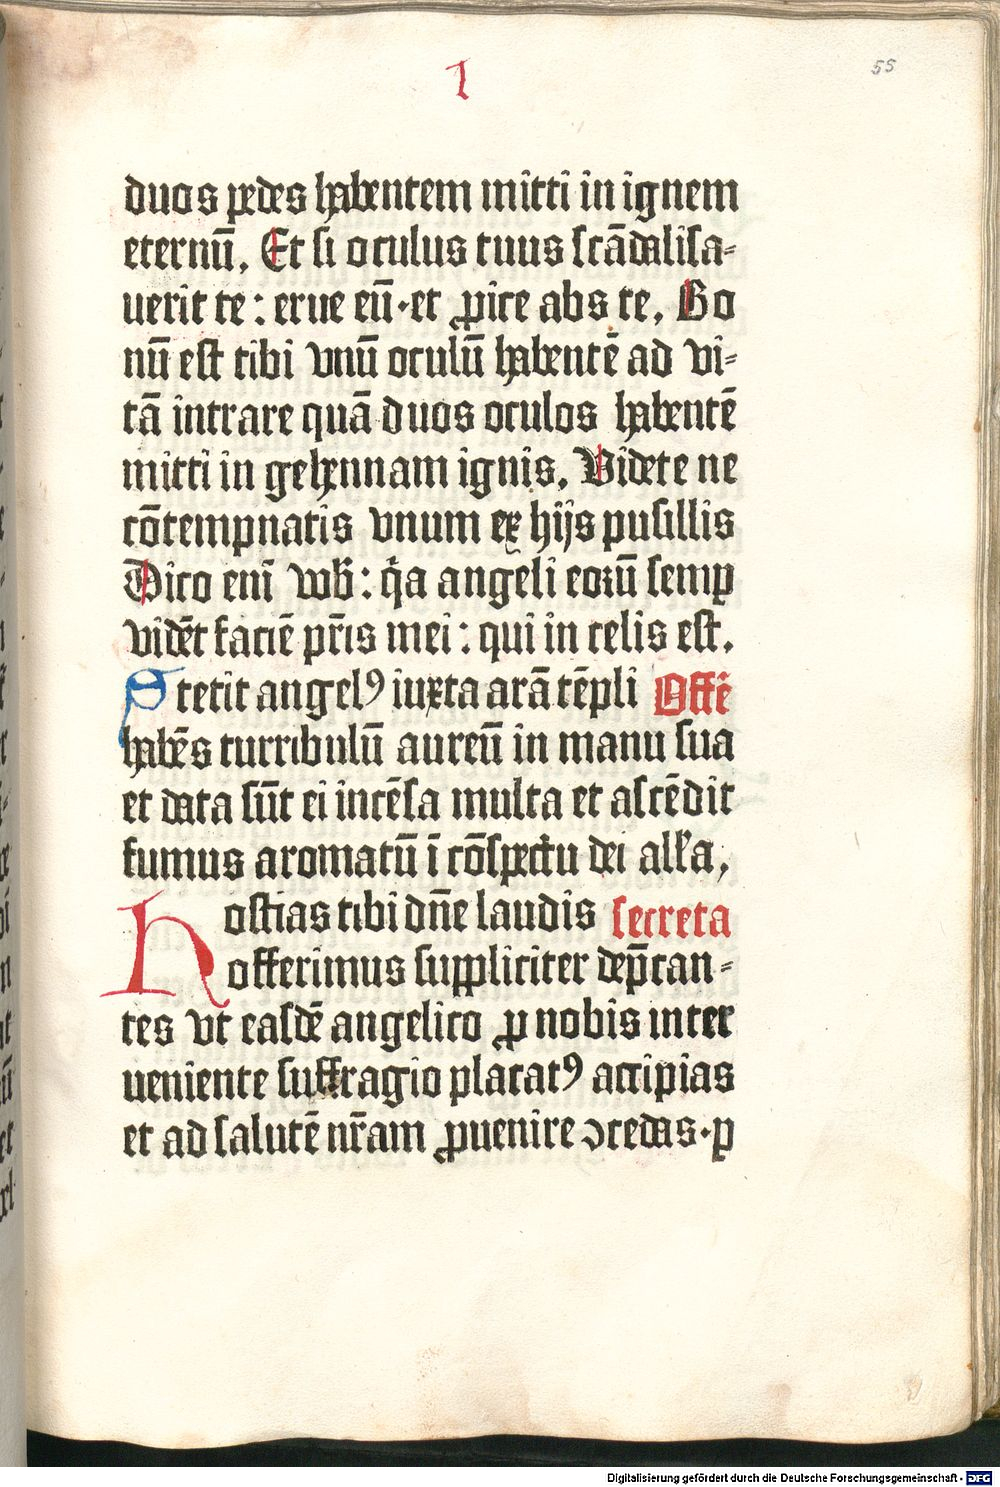 l
55
duos pedes habentem mitti in ignem
eternū. Et si oculus tuus scādalisa-
uerit te: erue eū·et ꝓice abs te. Bo
nū est tibi vnū oculū habentē ad vi-
tā intrare quā duos oculos habentē
mitti in gehennam ignis. Videte ne
cōtempnatis vnum ex hijs pusillis
Dico eni̅ vob̅: q̇a angeli eoꝛū semꝑ
vidēt faciē pr̄is mei: qui in celis est.
Stetit angelꝰ iuxta arā tēpli Offē
habēs turribulū aureū in manu sua
et data sūt ei incēsa multa et ascēdit
fumus aromatū ī cōspectu dei all̓a,
Hostias tibi dn̄e laudis secreta
offerimus suppliciter dep̄can-
tes vt easdē angelico ꝓ nobis inter
ueniente suffragio placatꝰ accipias
et ad salutē nr̄am ꝓuenire ↄcedas·ꝑ
Digitalisierung gefördert durch die Deutsche Forschungsgemeinschaft - DFG